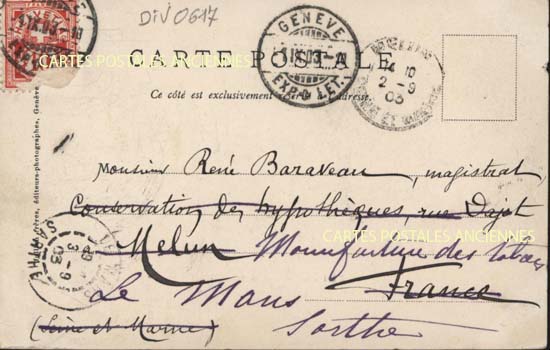 DIV0617
GENEVE
CARTE POSTALE
EXP. LET.
2-9
03
Ce côté est exclusivement réservé à l'adresse.
Monsieur René Baraveau, magistrat
Conservation des hypothèques, rue Dajot
CARTES POSTALES ANCIENNES
Melun Manufacture des tabacs
Le Mans France
(Seine et Marne) Sarthe
SARTHE
éditeurs-photographes, Genève